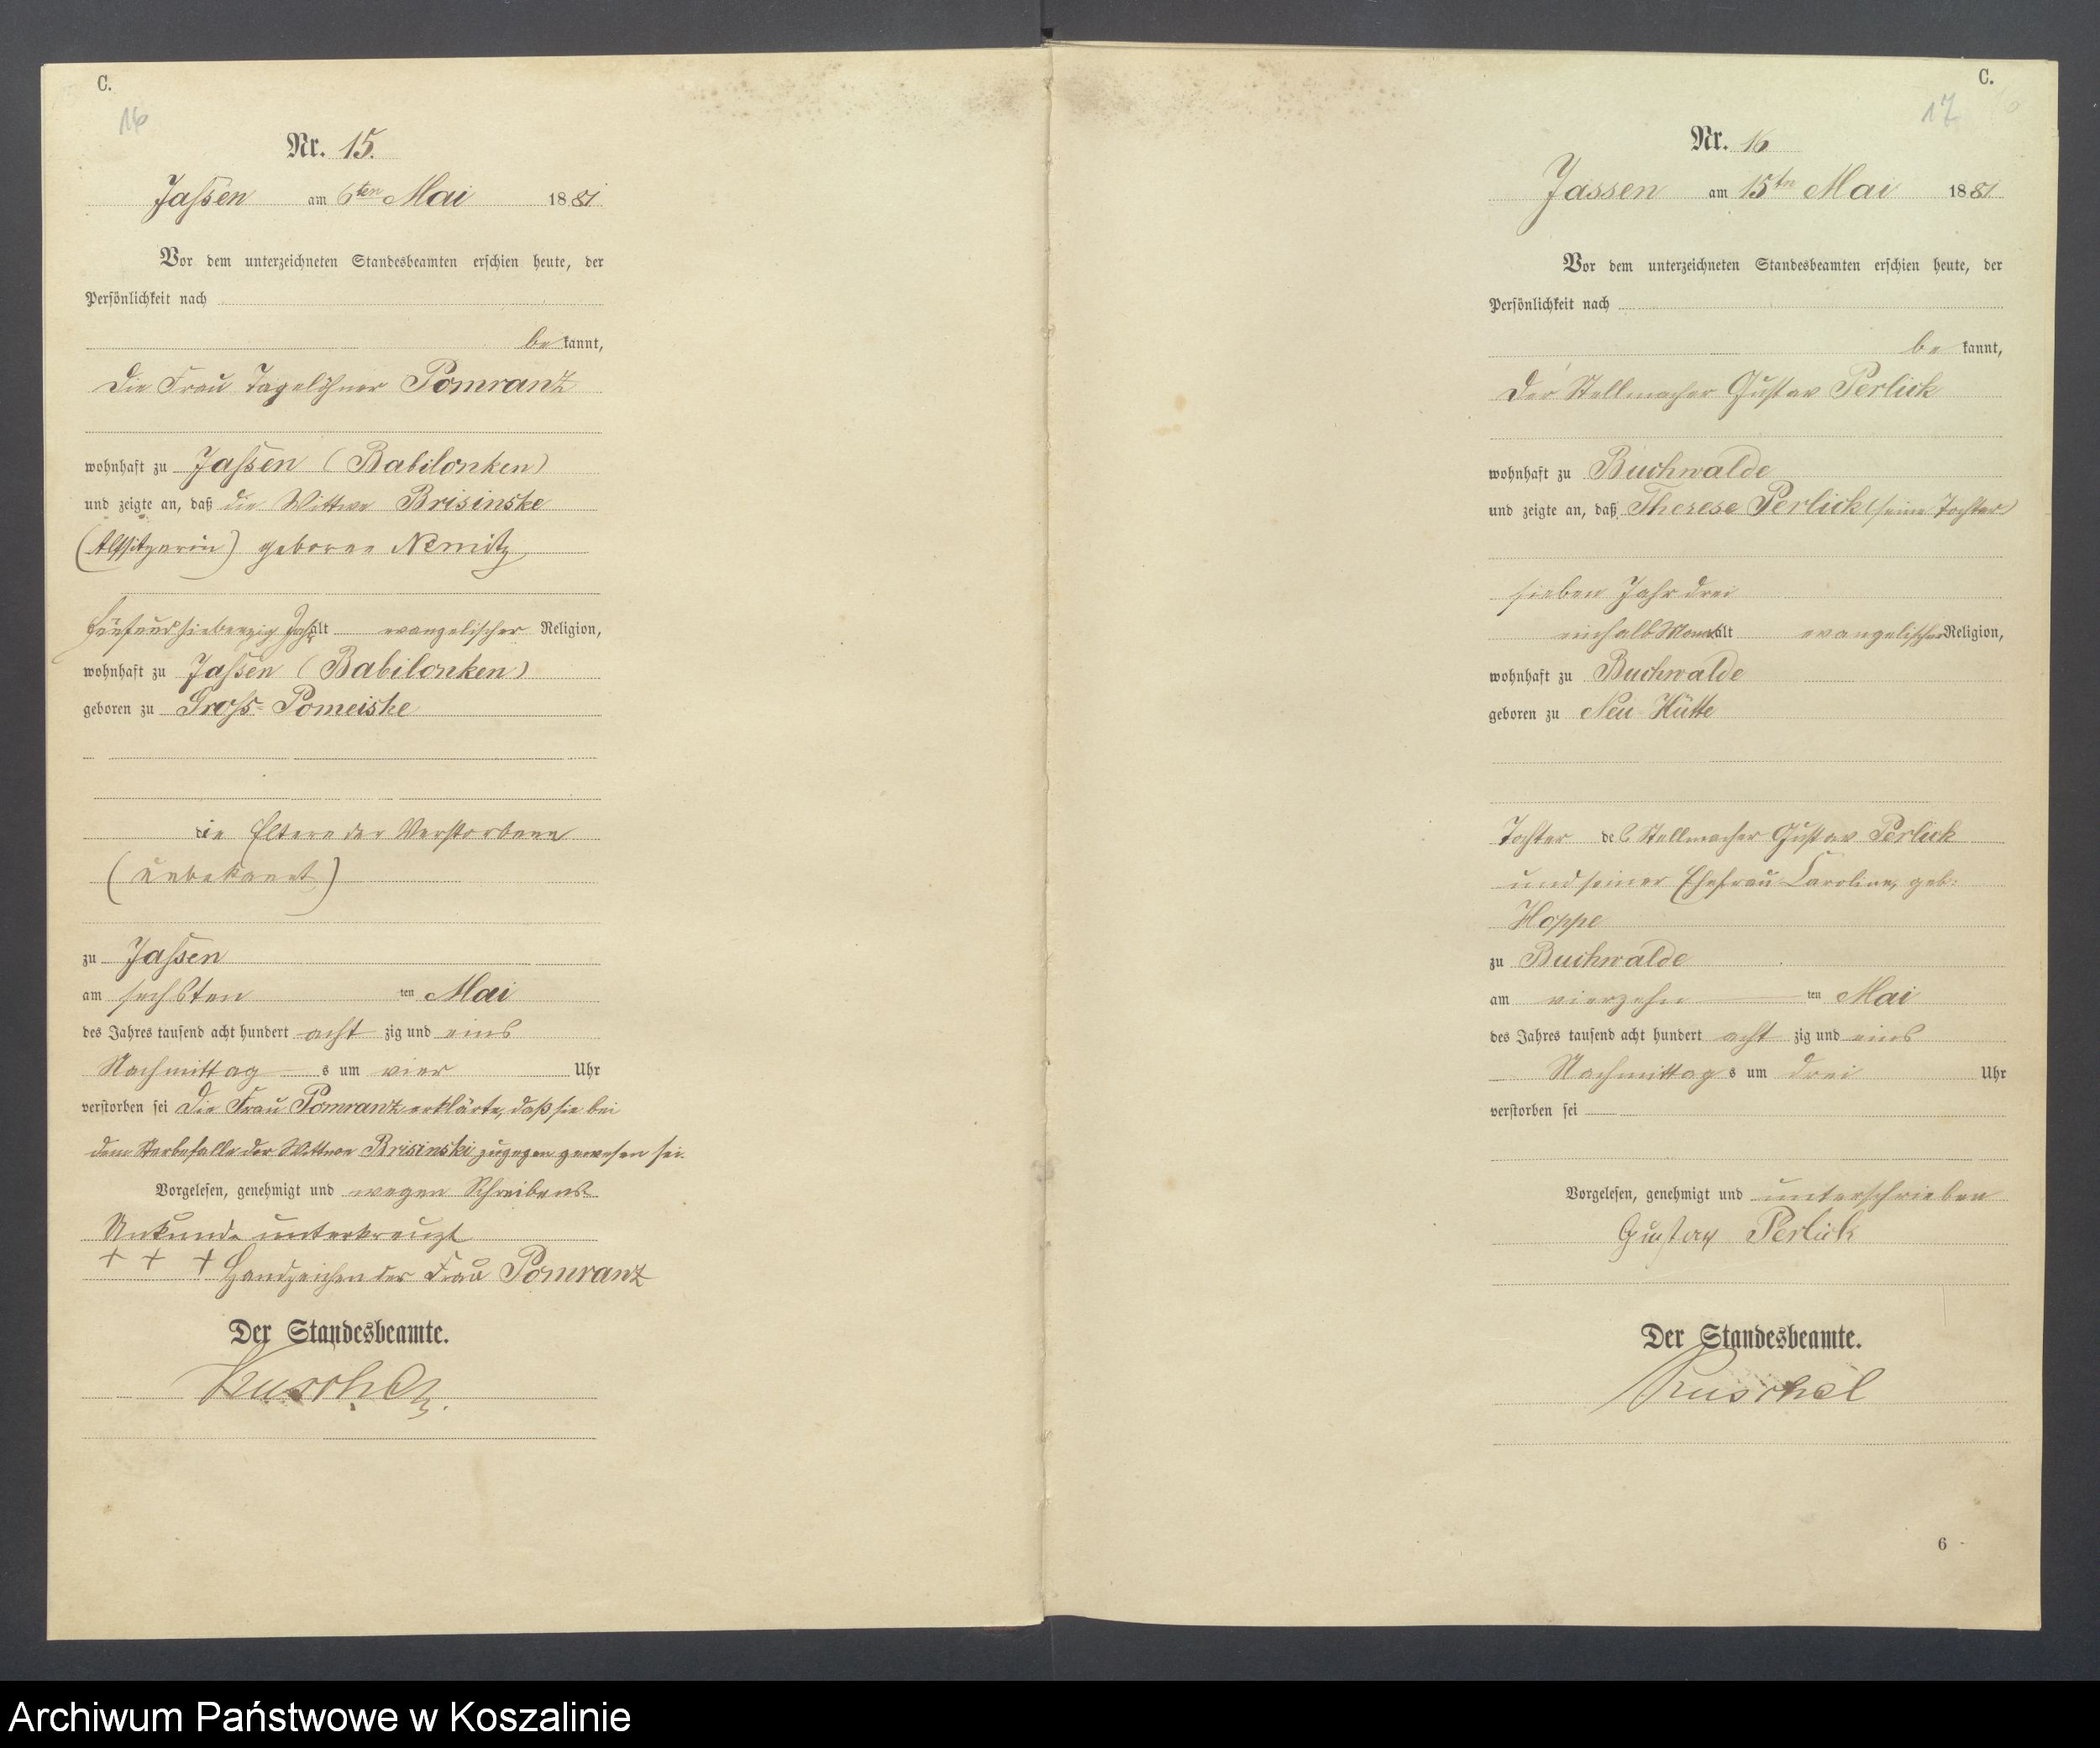 C.
16
Nr. 15.
Jaßen am 6ten Mai 1881
Vor dem unterzeichneten Standesbeamten erschien heute, der
Persönlichkeit nach
be kannt,
die Frau Tagelöhner Pomranz
wohnhaft zu Jaßen (Babilonken)
und zeigte an, daß die Wittwe Brisinske
(Altsitzerin) geborne Nemitz
fünfundsiebenzig Jahr alt evangelischer Religion,
wohnhaft zu Jaßen (Babilonken)
geboren zu Groß-Pomeiske
die Eltern der Verstorbene
(unbekannt)
zu Jaßen
am sechsten ten Mai
des Jahres tausend acht hundert acht zig und eins
Nachmittag s um vier Uhr
verstorben sei die Frau Pomranz erklärte, daß sie bei
dem Sterbefalle der Wittwe Brisinski zugegen gewesen sei.
Vorgelesen, genehmigt und wegen Schreibens-
Unkunde unterkreuzt
+ + + Handzeichen der Frau Pomranz
Der Standesbeamte.
C.
17
Nr. 16
Jassen am 15ten Mai 1881
Vor dem unterzeichneten Standesbeamten erschien heute, der
Persönlichkeit nach
be kannt,
der Stellmacher Gustav Perlick
wohnhaft zu Buchwalde
und zeigte an, daß Therese Perlick (seine Tochter)
sieben Jahr drei
einhalb Monat alt evangelischer Religion,
wohnhaft zu Buchwalde
geboren zu Neu-Hütte
Tochter des Stellmacher Gustav Perlick
und seiner Ehefrau Caroline, geb:
Hoppe
zu Buchwalde
am vierzehn ten Mai
des Jahres tausend acht hundert acht zig und eins
Nachmittag s um drei Uhr
verstorben sei
Vorgelesen, genehmigt und unterschrieben
Gustav Perlick
Der Standesbeamte.
Kuschel
6
Archiwum Państwowe w Koszalinie